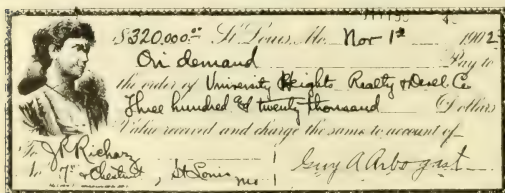 $320.000.00 St Louis, Mo. Nor 1st 1902
On demand Pay to
the order of University Heights Realty & Devel. Co
Three hundred & twenty thousand Dollars
Value received and charge the same to account of
To J R Richarz Guy A Arbogast
7th & Chestnut, St Louis Mo.